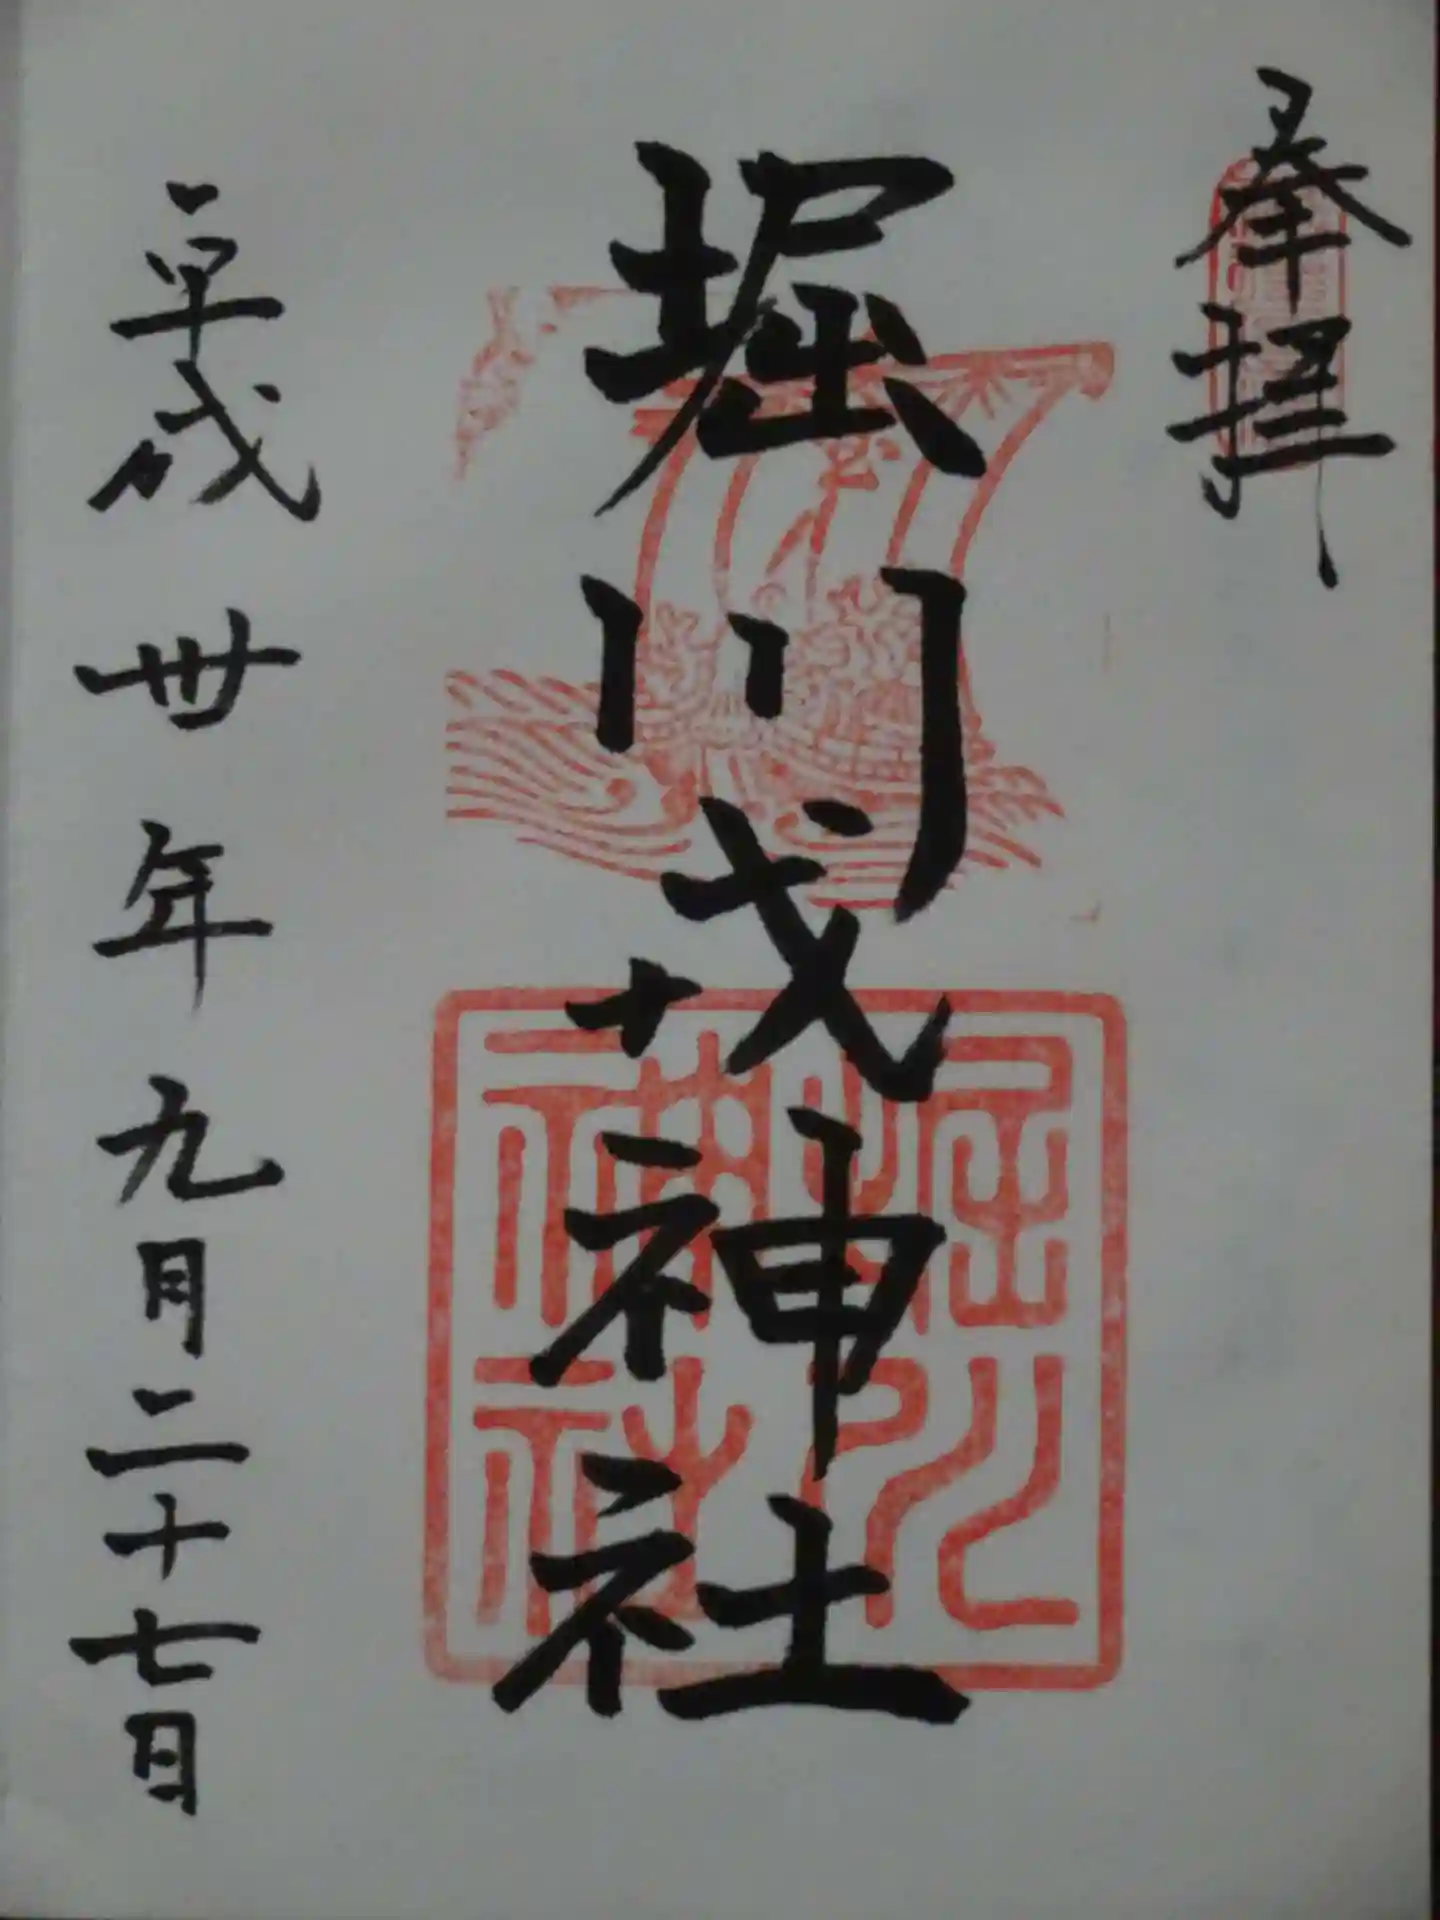 奉拝
堀川戎神社
堀川
神社
平成丗年九月二十七日